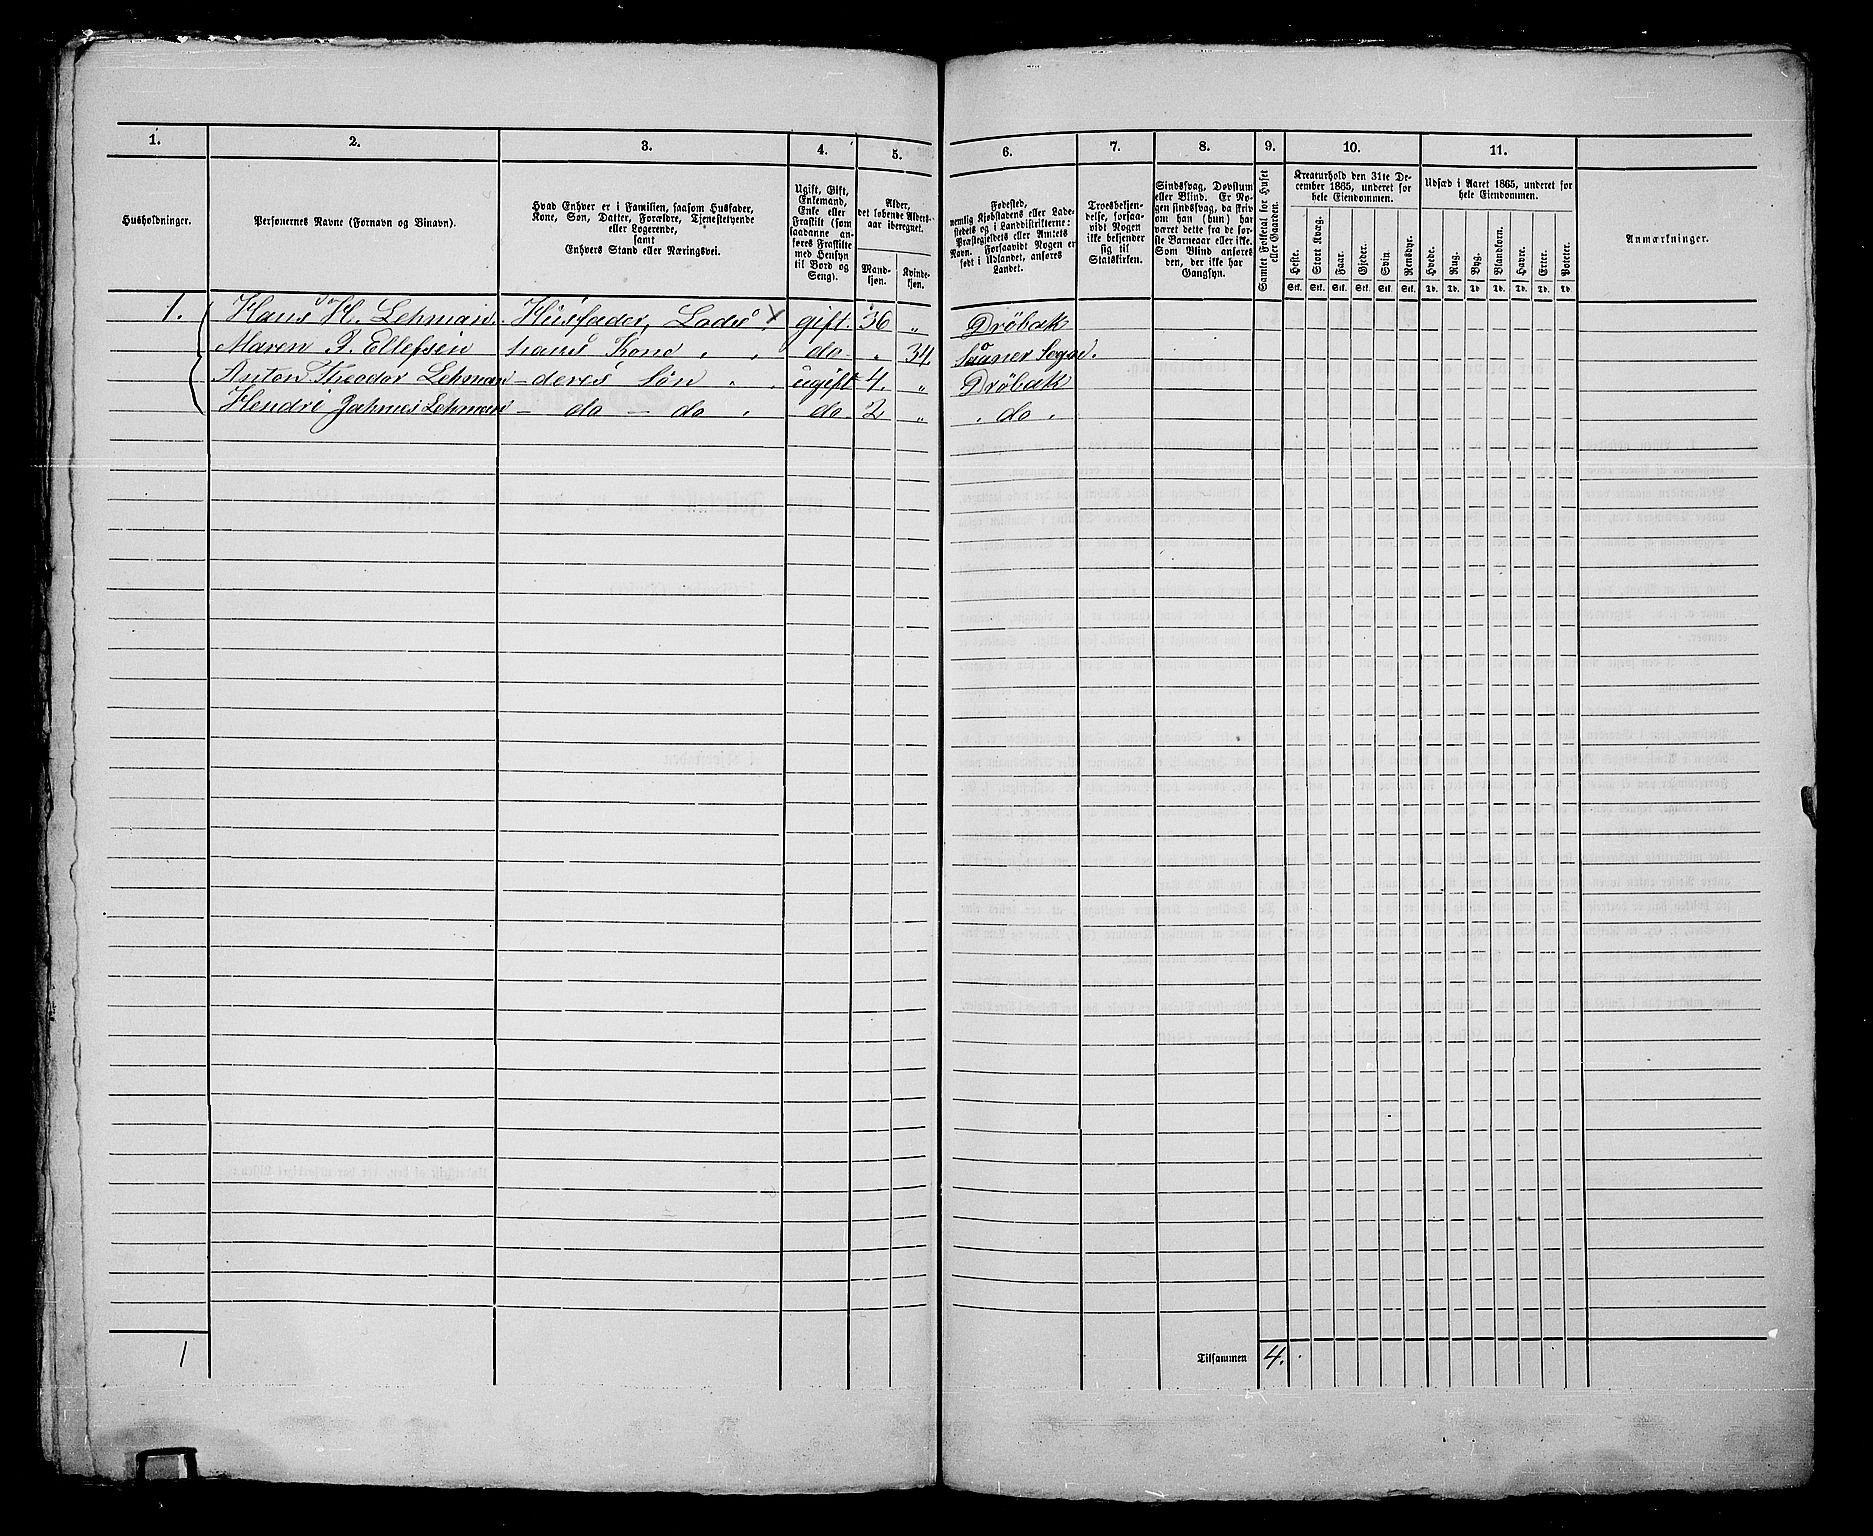 1. 2. 3. 4. 5. 6. 7. 8. 9. 10. 11.
Husholdninger.
Personernes Navne (Fornavn og Binavn).
Hvad Enhver er i Familien, saasom Husfader,
Kone, Søn, Datter, Forældre, Tjenestetyende
eller Logerende,
samt
Enhvers Stand eller Næringsvei.
Ugift, Gift,
Enkemand,
Enke eller
Fraskilt (som
saadanne an-
føres Fraskilte
med Hensyn
til Bord og
Seng).
Alder,
det løbende Alders-
aar iberegnet.
Mand-
kjøn.
Kvinde-
kjøn.
Fødested,
nemlig Kjøbstadens eller Lade-
stedets og i Landdistrikterne:
Præstegjeldets eller Amtets
Navn. Forsaavidt Nogen er
født i Udlandet, anføres
Landet.
Troesbekjen-
delse, forsaa-
vidt Nogen
ikke bekjender
sig til
Statskirken.
Sindssvag, Døvstum
eller Blind. Er No-
gen sindssvag, da skriv
om han (hun) har
været dette fra de før-
ste Barneaar eller ikke.
Som Blind anføres
den, der ikke har
Gangsyn.
Samlet Folketal for Huset
eller Gaarden.
Kreaturhold den 31te De-
cember 1865, underet for
hele Eiendommen.
Heste. Stort Kvæg. Faar. Gjeder. Svin. Rensdyr.
Stk. Stk. Stk. Stk. Stk. Stk.
Udsæd i Aaret 1865, underet for
hele Eiendommen.
Hvede. Rug. Byg. Blandkorn. Havre. Erter. Poteter.
Td. Td. Td. Td. Td. Td. Td.
Anmærkninger.
1. Hans H. Lehman. Husfader, Lods gift. 36 " Drøbak
Maren P. Ellefsen hans Kone do 34 Sogn.
Anton Theodor Lehman deres Søn ugift 4. " Drøbak
Hendri Jahnes Lehman do do do 2 " do
1
Tilsammen 4.